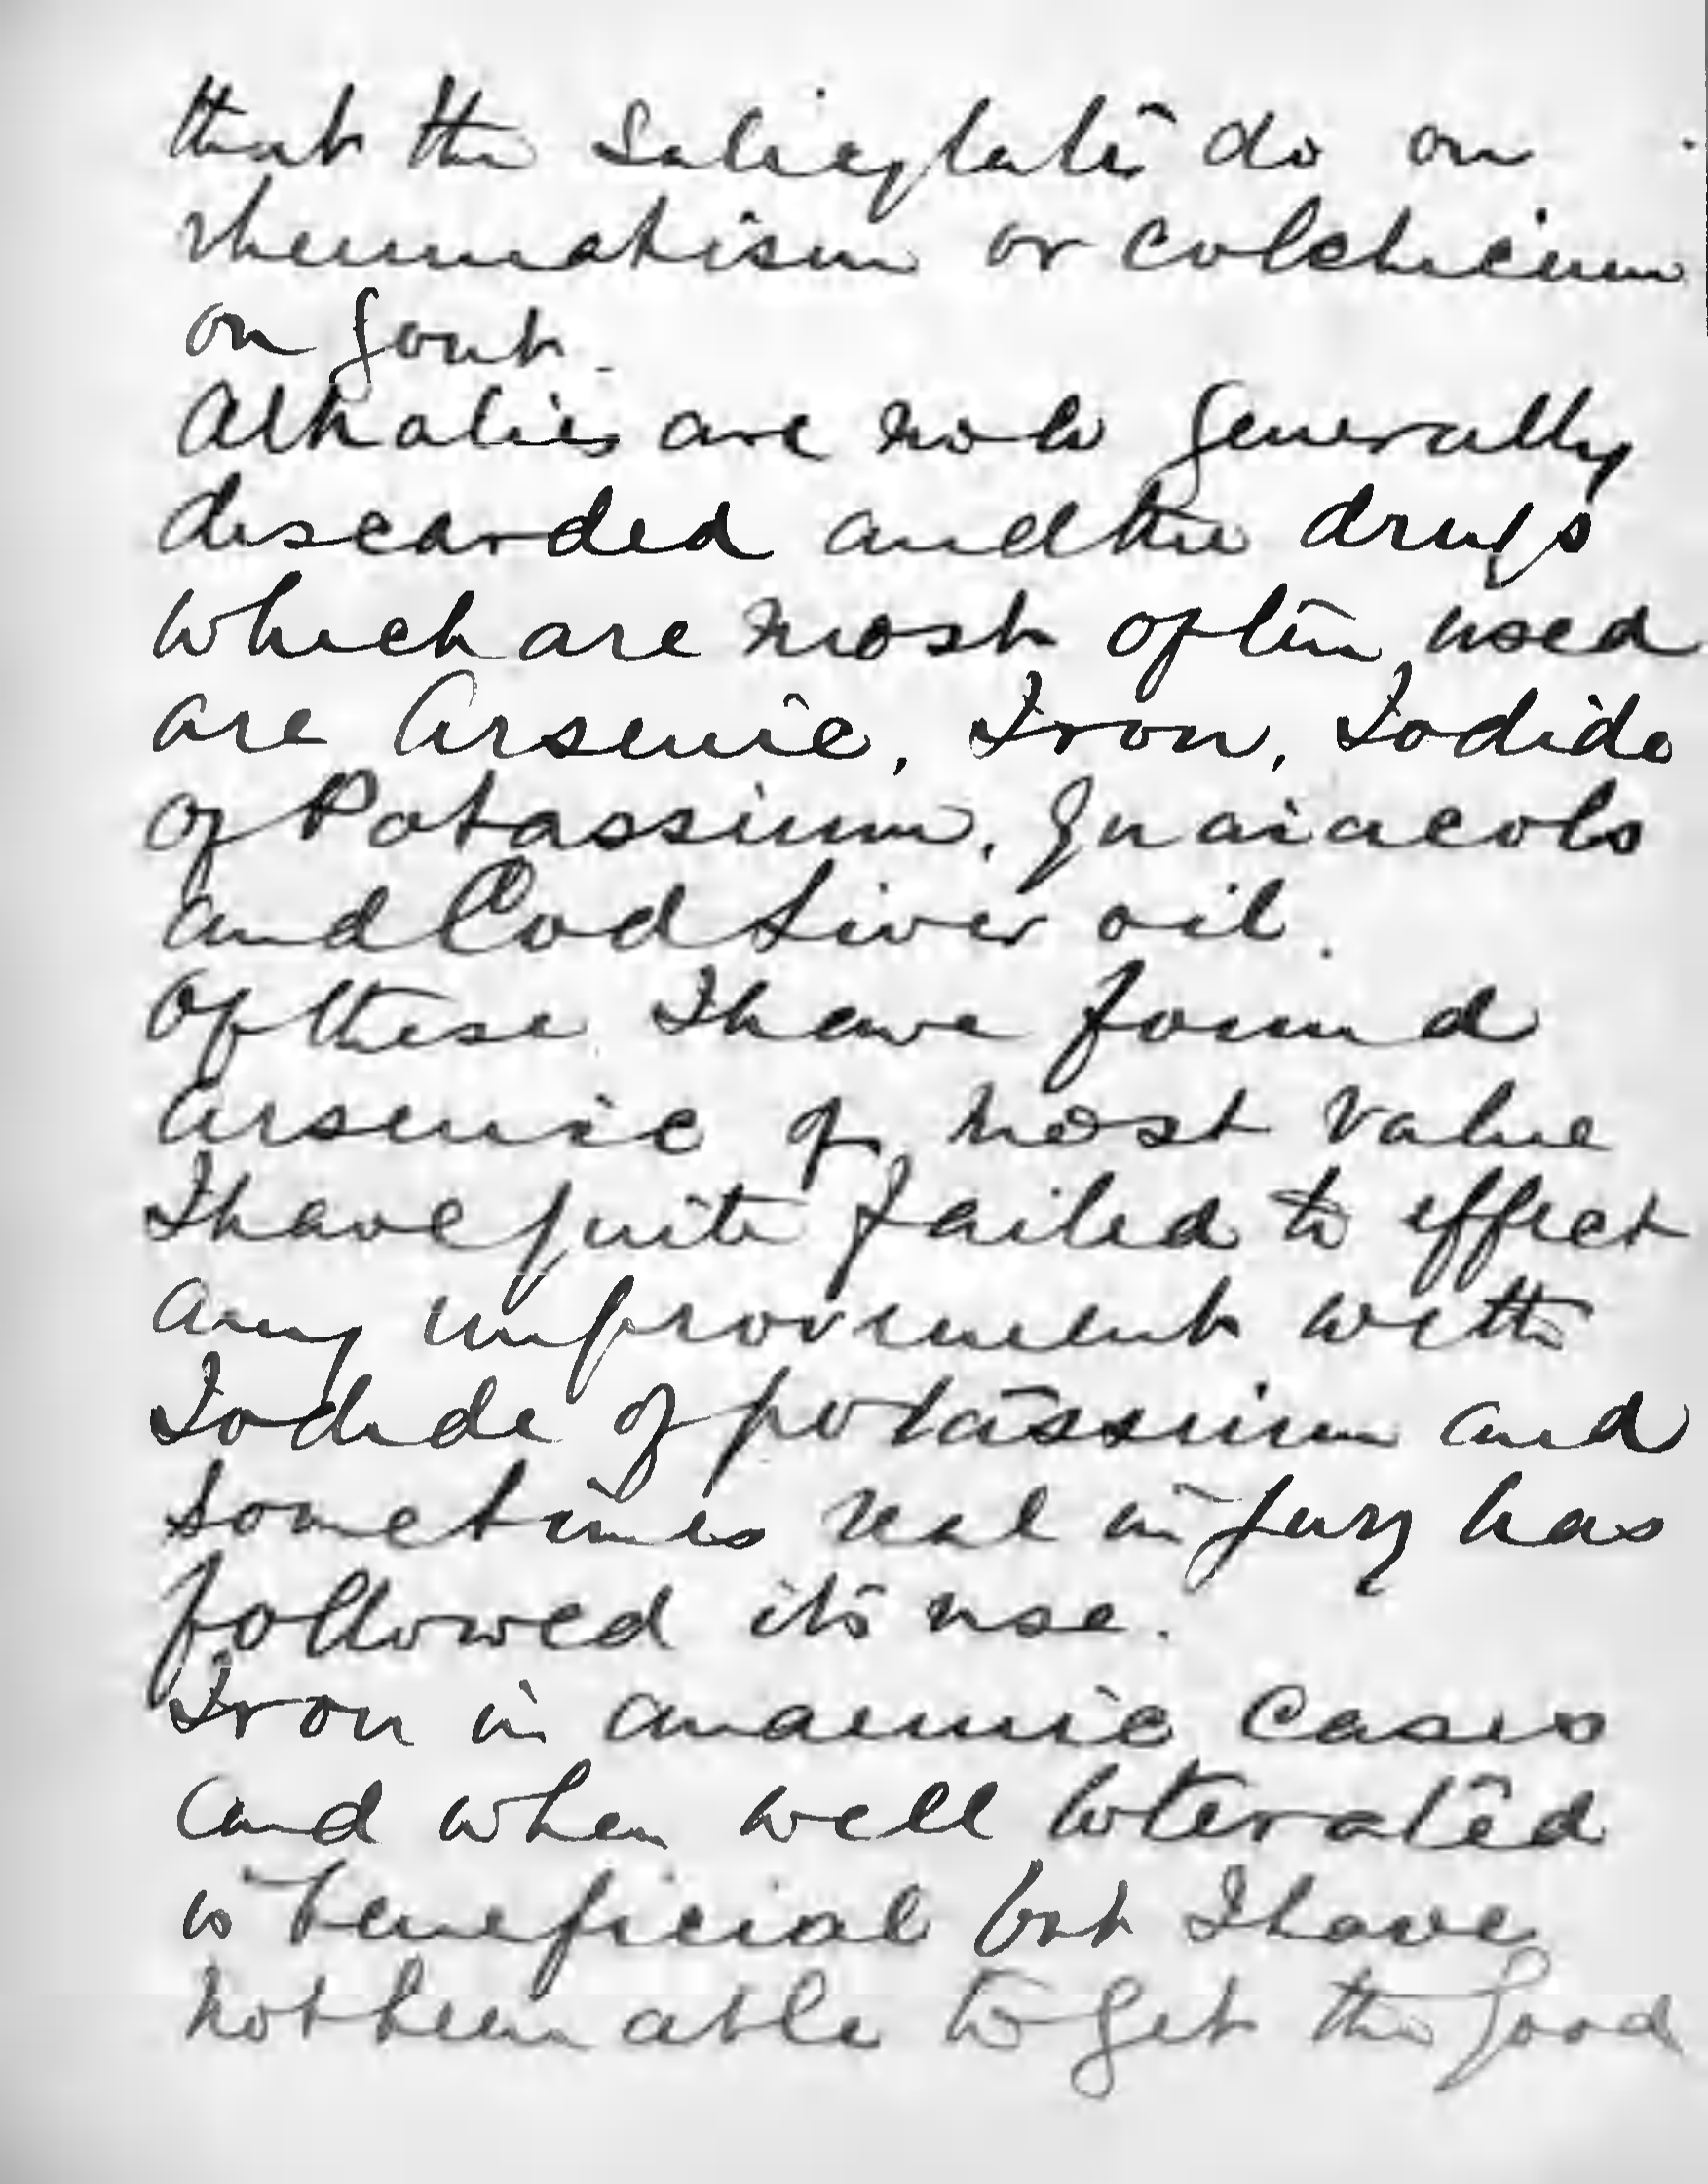 that the Salicylates do on
rheumatism or colchicum
on gout.
Alkalies are now generally
discarded and the drugs
which are most often used
are Arsenic, Iron, Iodide
of Potassium, Guaiacols
and Cod Liver oil.
Of these I have found
Arsenic of most value
I have quite failed to effect
any improvement with
Iodide of potassium and
sometimes real injury has
followed its use.
Iron in anaemic cases
and when well tolerated
is beneficial but I have
not been able to get the good